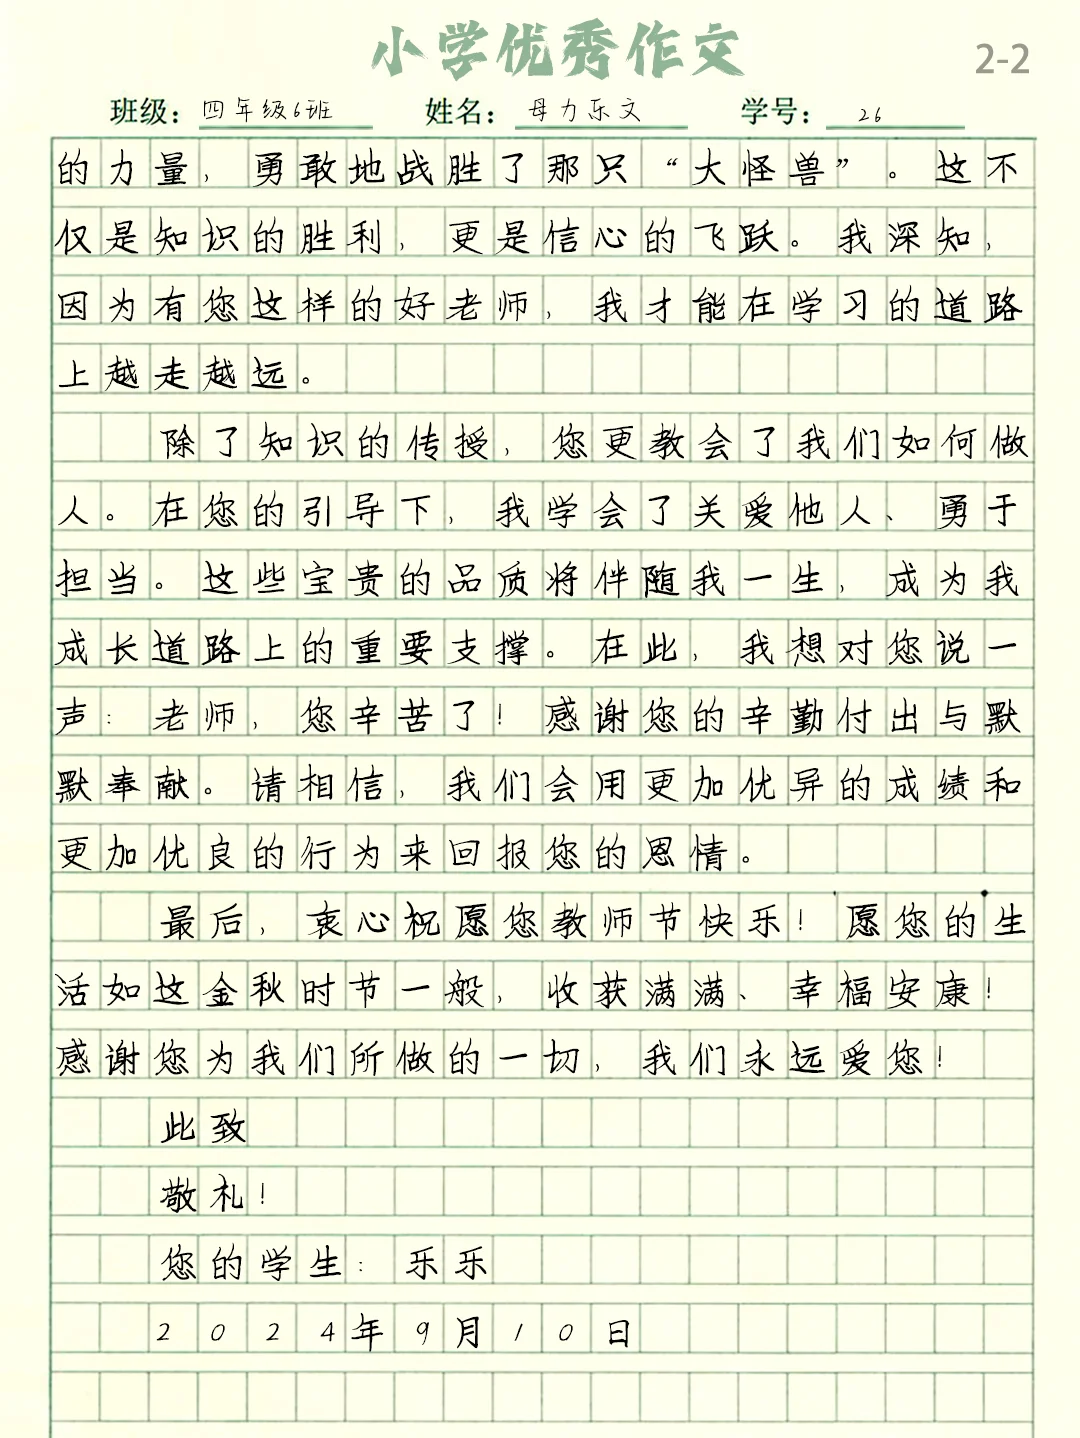 小学优秀作文
2-2
班级：四年级6班 姓名：母力乐文 学号：26
的力量，勇敢地战胜了那只“大怪兽”。这不
仅是知识的胜利，更是信心的飞跃。我深知，
因为有您这样的好老师，我才能在学习的道路
上越走越远。
除了知识的传授，您更教会了我们如何做
人。在您的引导下，我学会了关爱他人、勇于
担当。这些宝贵的品质将伴随我一生，成为我
成长道路上的重要支撑。在此，我想对您说一
声：老师，您辛苦了！感谢您的辛勤付出与默
默奉献。请相信，我们会用更加优异的成绩和
更加优良的行为来回报您的恩情。
最后，衷心祝愿您教师节快乐！愿您的生
活如这金秋时节一般，收获满满、幸福安康！
感谢您为我们所做的一切，我们永远爱您！
此致
敬札！
您的学生：乐乐
2024年9月10日